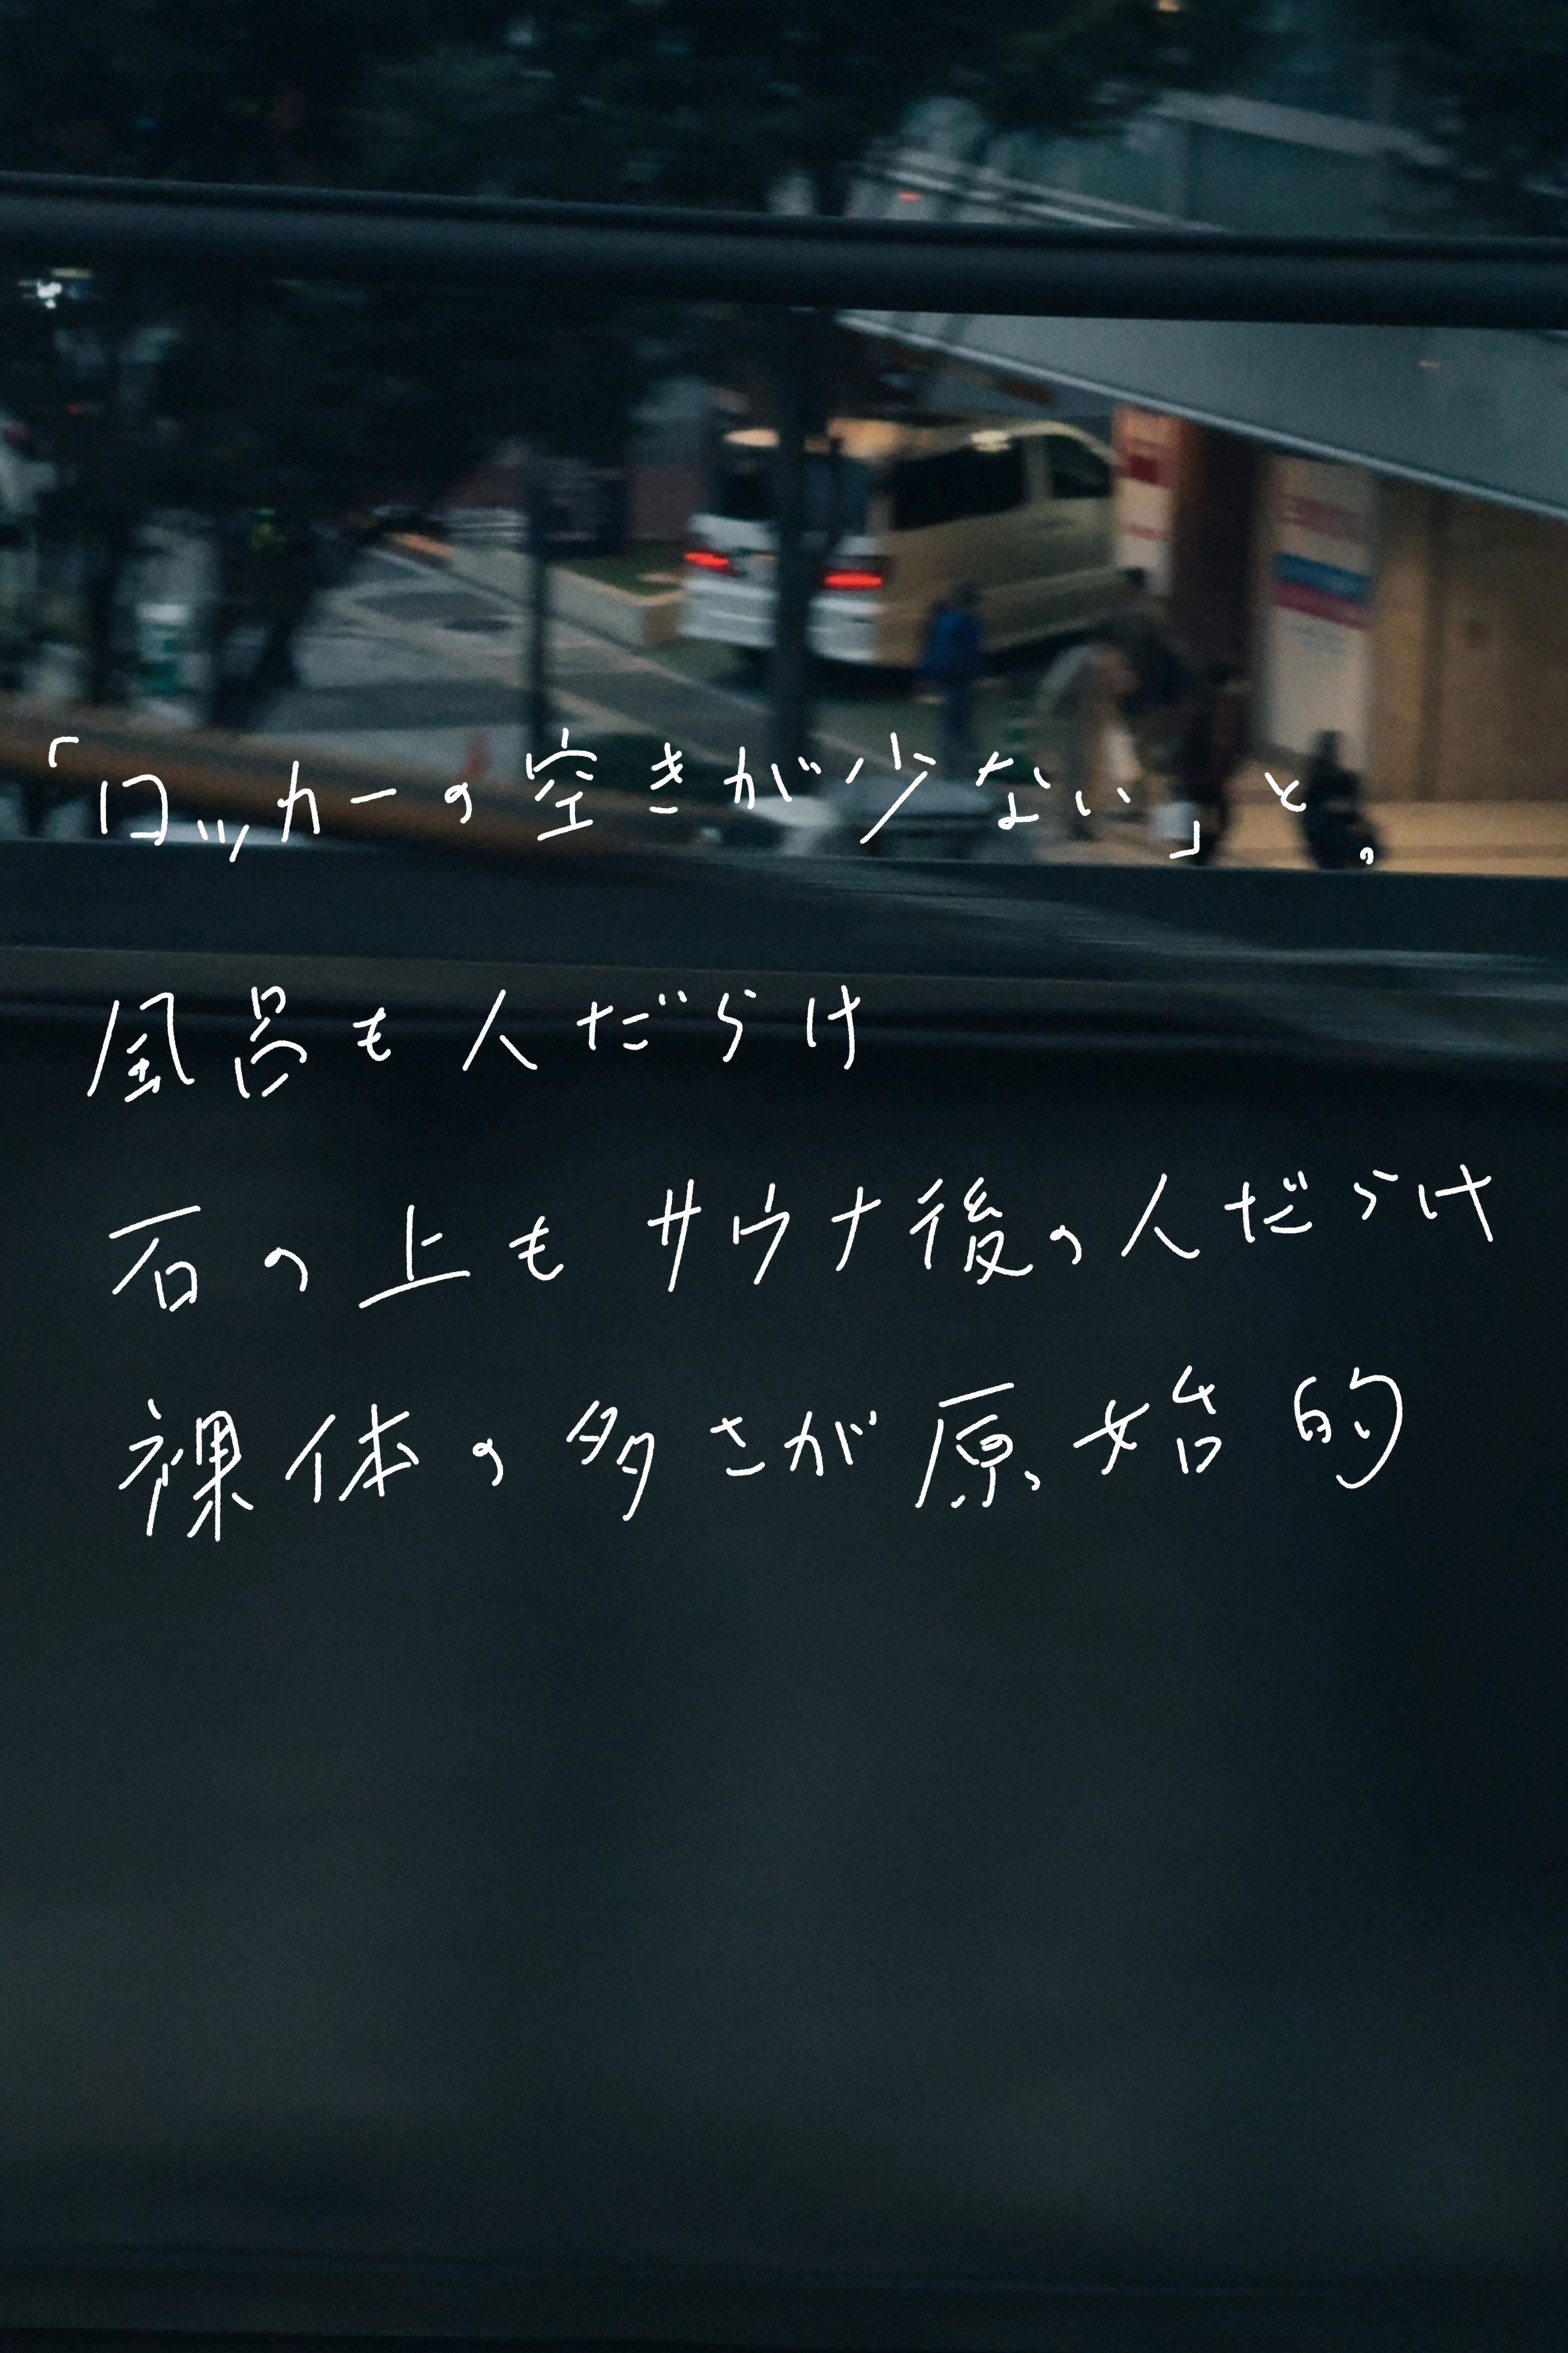 「ロッカーの空きが少ない」と。
風呂も人だらけ
石の上もサウナ後の人だらけ
裸体の多さが原始的